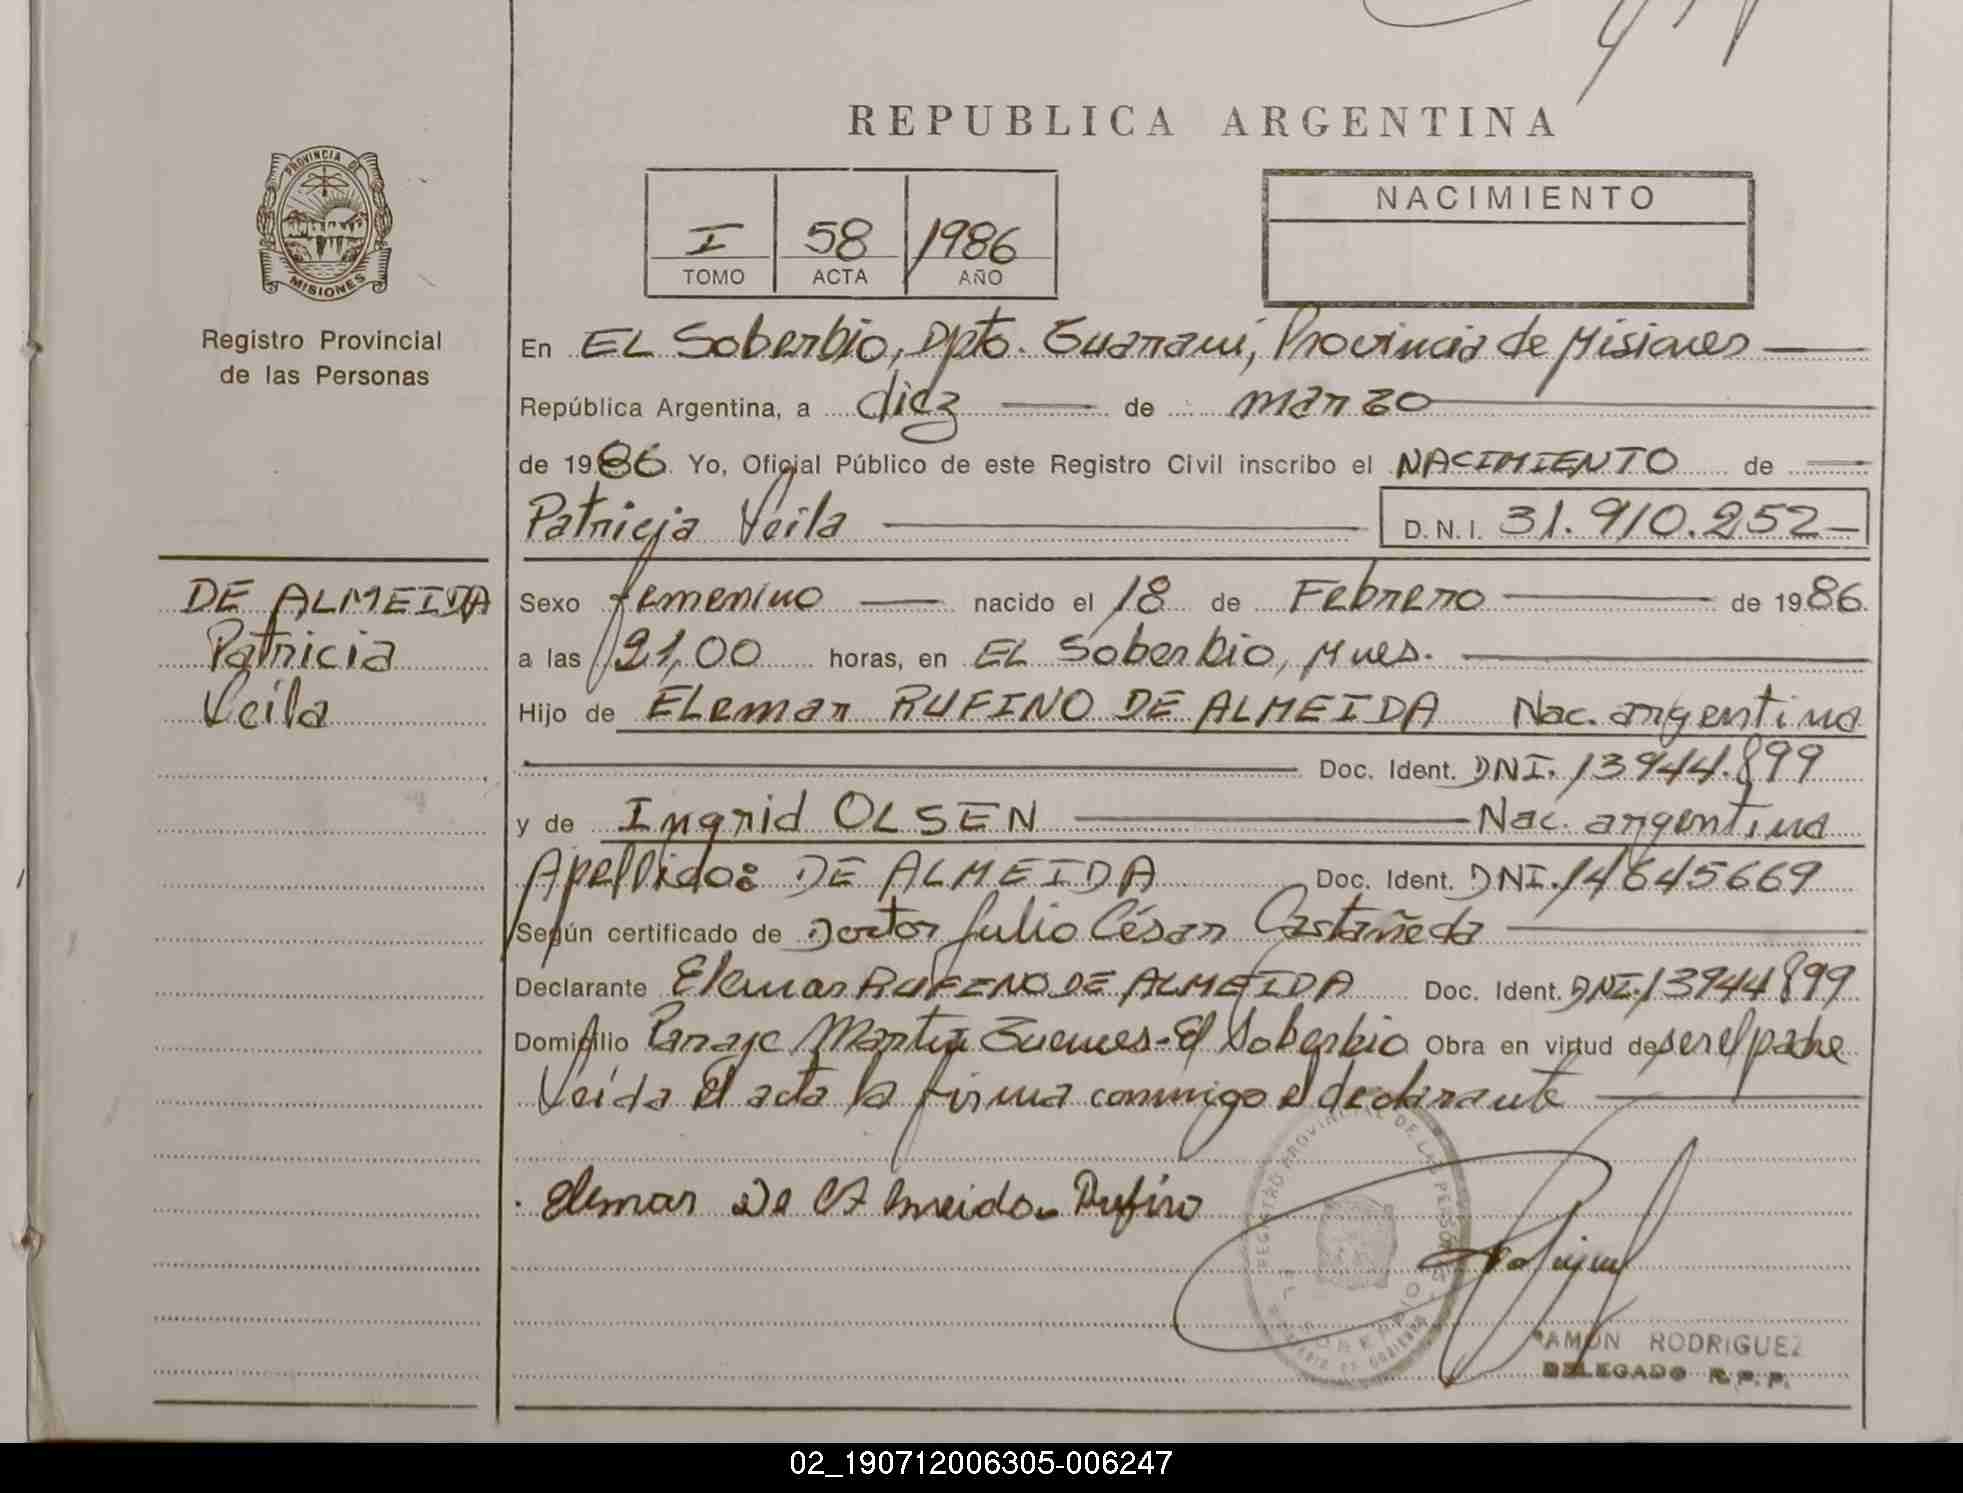 REPUBLICA ARGENTINA
PROVINCIA DE
MISIONES
Registro Provincial
de las Personas
I
TOMO
58
ACTA
1986
AÑO
NACIMIENTO
En EL Soberbio, Dpto. Guarani, Provincia de Misiones
República Argentina, a diez de marzo
de 1986. Yo, Oficial Público de este Registro Civil inscribo el NACIMIENTO de
Patricia Leila D.N.I. 31.910.252
DE ALMEIDA
Patricia
Leila
Sexo femenino nacido el 18 de Febrero de 1986.
a las 21,00 horas, en EL Soberbio, Mnes.
Hijo de ELemar RUFINO DE ALMEIDA Nac. argentina
Doc. Ident. DNI. 13944.899
y de Ingrid OLSEN Nac. argentina
Apellido: DE ALMEIDA Doc. Ident. DNI. 14645669
Según certificado de Doctor Julio César Castañeda
Declarante Elemar RUFINO DE ALMEIDA Doc. Ident. DNI. 13944899
Domicilio Paraje Martin Guemes-El Soberbio Obra en virtud de ser el padre
Leida el acta la firma conmigo el declarante
Elemar De Almeida Rufino
REGISTRO PROVINCIAL DE LAS PERSONAS
EL SOBERBIO
RAMON RODRIGUEZ
DELEGADO R.P.P.
02_190712006305-006247